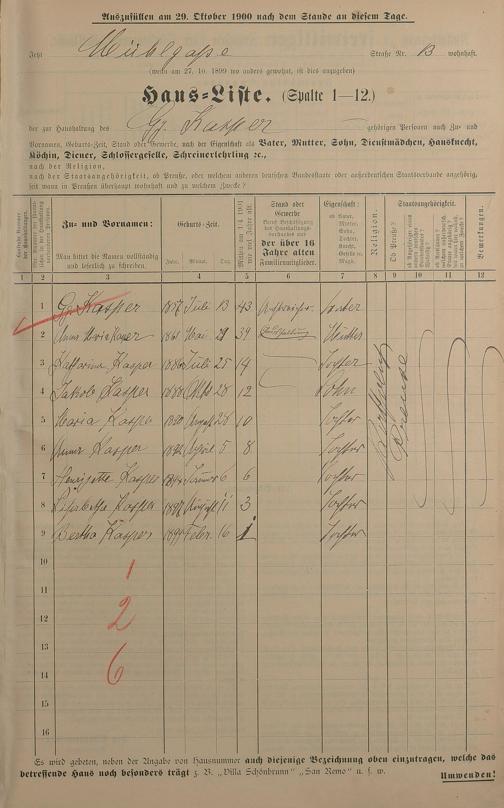 Auszufüllen am 29. Oktober 1900 nach dem Stande an diesem Tage.
Jetzt Mühlgasse Straße Nr. 13 wohnhaft.
(wenn am 27. 10. 1899 wo anders gewohnt, ist dies anzugeben)
Haus=Liste. (Spalte 1—12.)
der zur Haushaltung des Gg. Kasper gehörigen Personen nach Zu- und
Vornamen, Geburts-Zeit, Stand oder Gewerbe, nach der Eigenschaft als Vater, Mutter, Sohn, Dienstmädchen, Hausknecht,
Köchin, Diener, Schlossergeselle, Schreinerlehrling ꝛc.,
nach der Religion,
nach der Staatsangehörigkeit, ob Preuße, oder welchem anderen deutschen Bundesstaate oder außerdeutschen Staatsverbande angehörig,
seit wann in Preußen überhaupt wohnhaft und zu welchem Zwecke?
Zu- und Vornamen:
Man bittet die Namen vollständig
und leserlich zu schreiben.
Geburts-Zeit.
Jahr. Monat. Tag.
Stand oder
Gewerbe
der über 16
Jahre alten
Familienmitglieder.
Eigenschaft:
ob Vater,
Mutter,
Sohn,
Tochter,
Knecht,
Geselle ꝛc.
Magd.
Religion.
Staatsangehörigkeit.
Ob Preuße?
Bemerkungen.
1 2 3 4 5 6 7 8 9 10 11 12
1 Gg. Kasper 1857 Juli 13 43 Vater
2 Anna Kasper 1861 Mai 39 Mutter
3 Katharina Kasper 1886 Juli 25 14 Tochter
4 Jakob Kasper 1888 28 12 Sohn
5 Maria Kasper 1890 August 28 10 Tochter
6 Anna Kasper 1892 April 5 8 Tochter
7 Henriette Kasper 1894 6 6 Tochter
8 Elisabetha Kasper 1897 August 11 3 Tochter
9 Bertha Kasper 1899 Febr. 16 1 Tochter
Preuße
10
11
12
13
14
15
16
1
2
6
Es wird gebeten, neben der Angabe von Hausnummer auch diejenige Bezeichnung oben einzutragen, welche das
betreffende Haus noch besonders trägt z. B. „Villa Schönbrunn" „San Remo" u. s. w.
Umwenden!